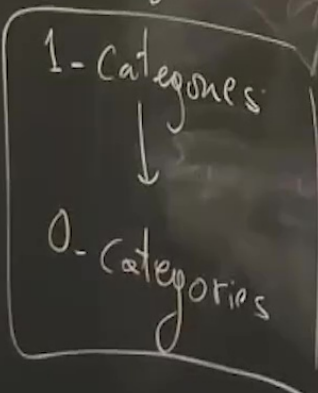 1-Categories
↓
0-Categories